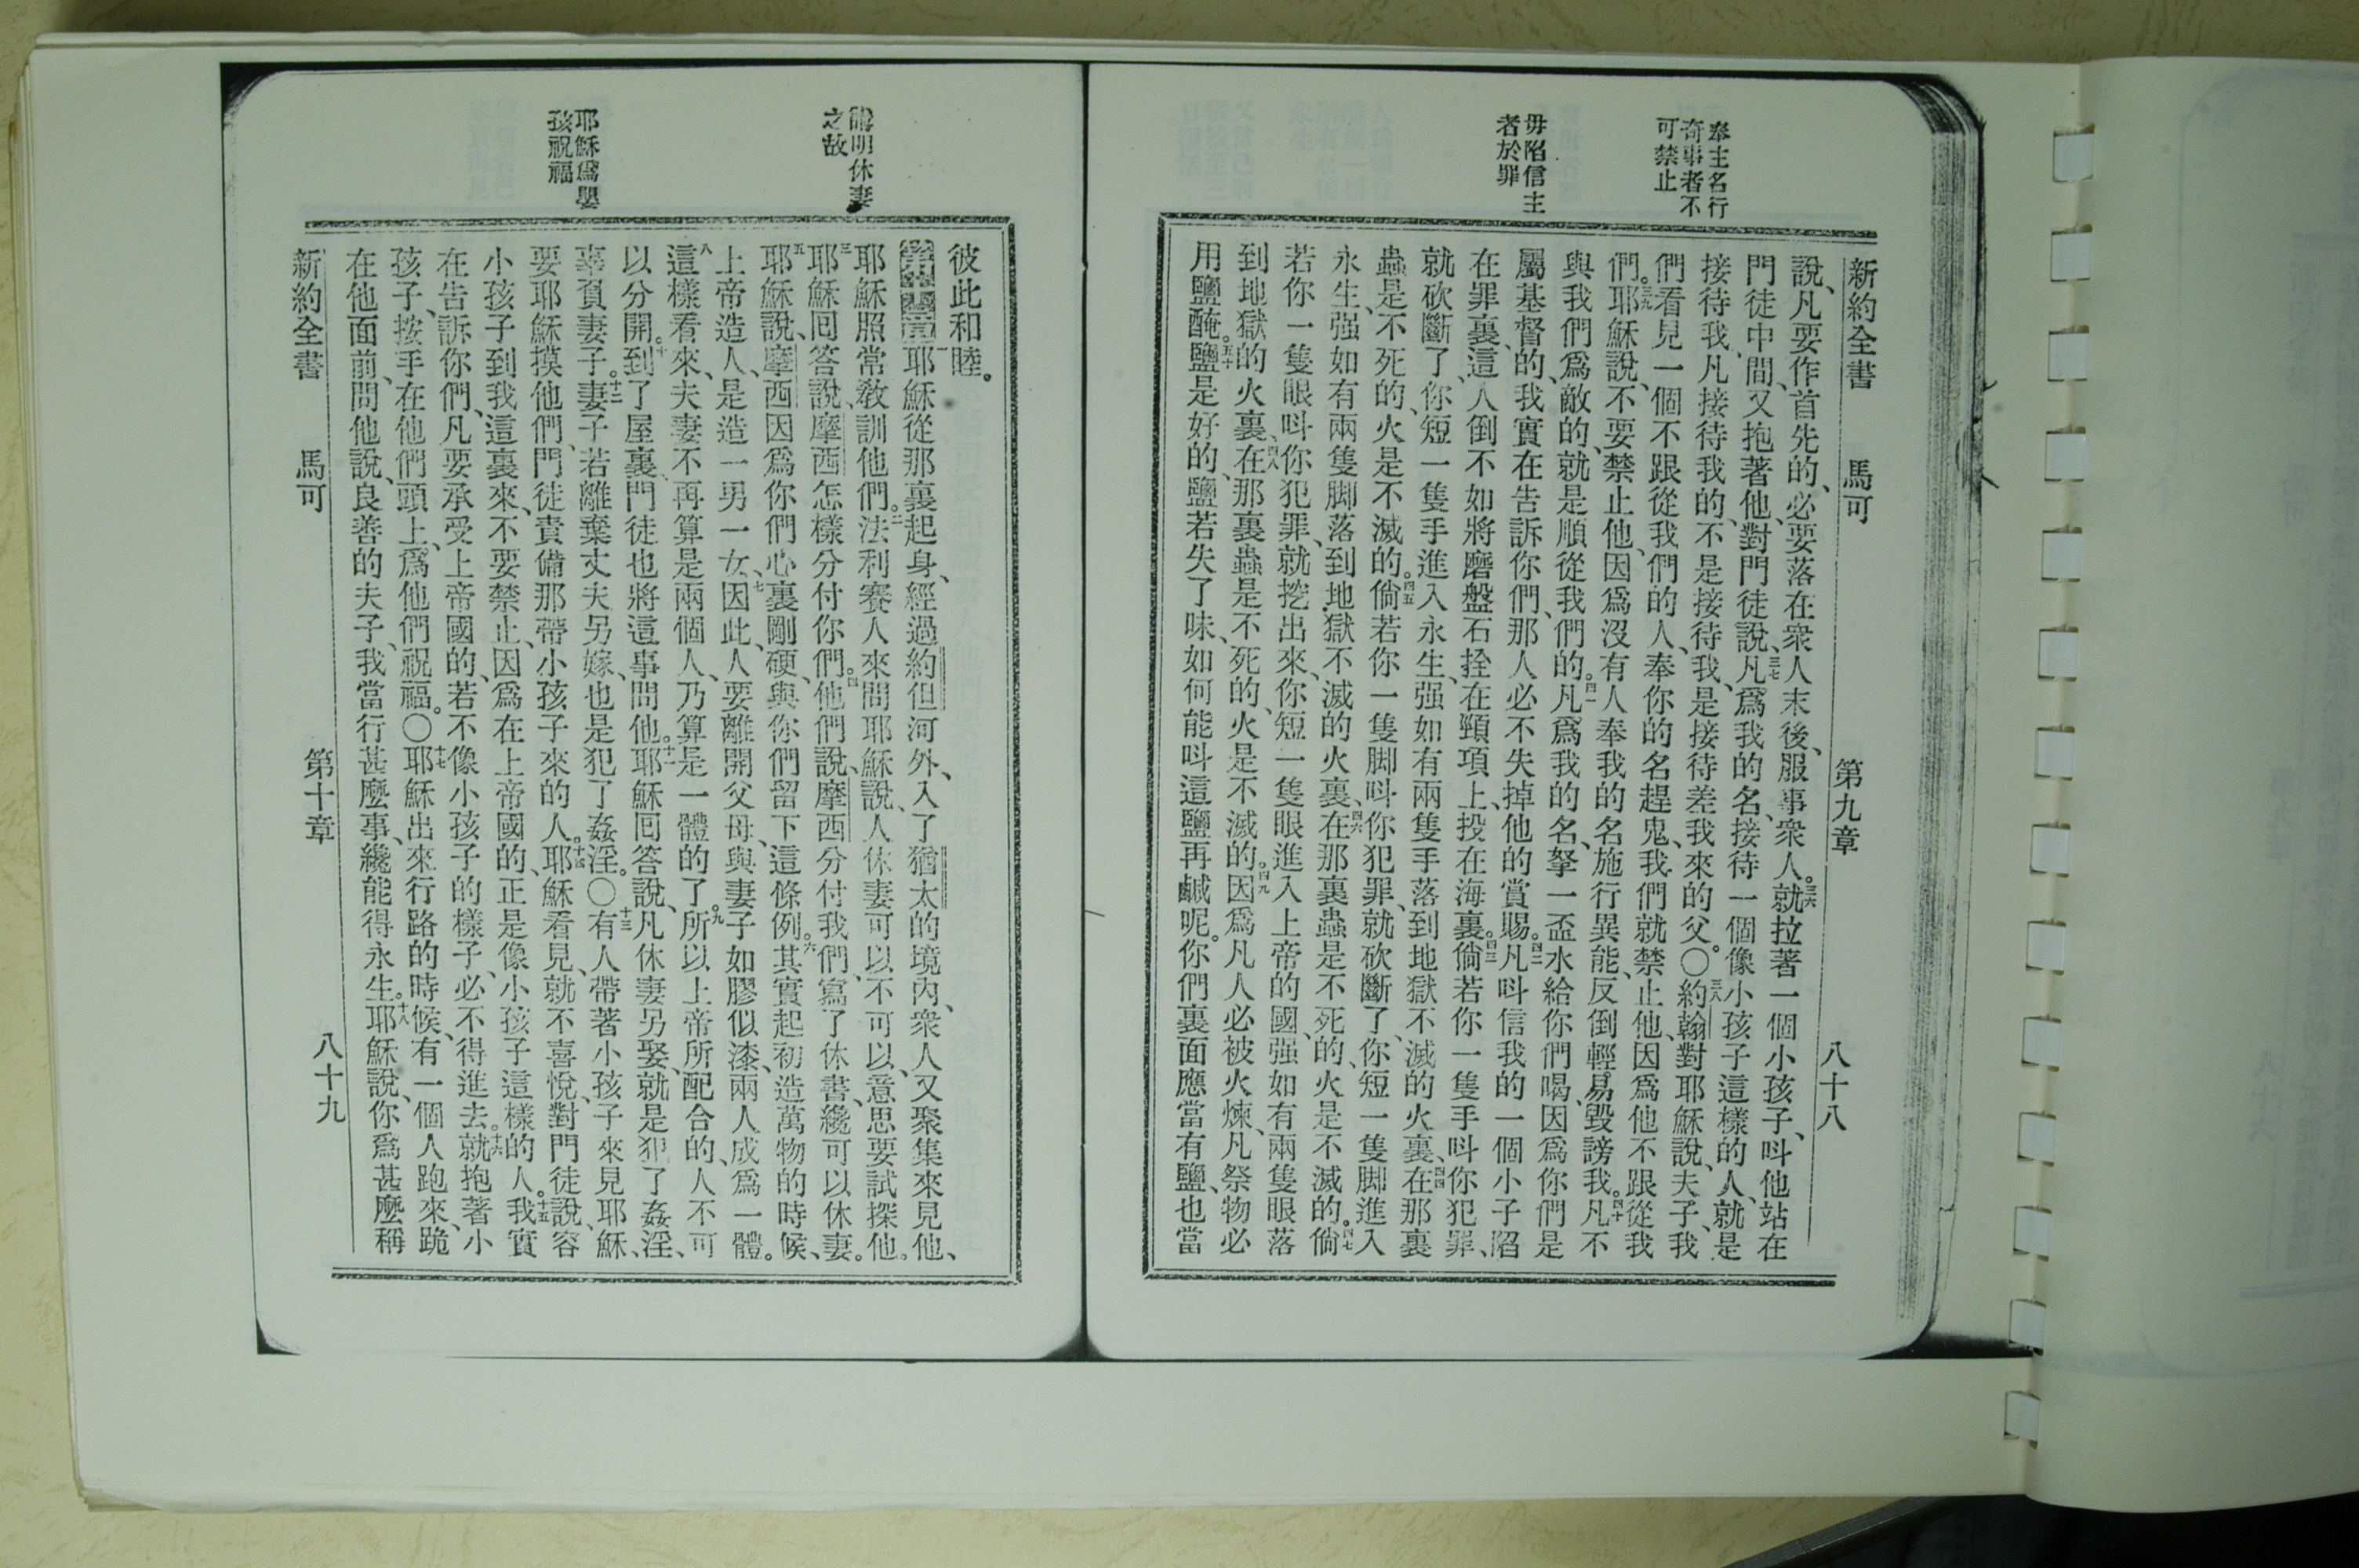 奉主名行
奇事者不
可禁止
毋陷信主
者於罪
新約全書 馬可 第九章 八十八
說、凡要作首先的、必要落在衆人末後、服事衆人。三六就拉著一個小孩子、呌他站在
門徒中間、又抱著他、對門徒說、三七凡爲我的名、接待一個像小孩子這樣的人、就是
接待我、凡接待我的、不是接待我、是接待差我來的父。〇三八約翰對耶穌說、夫子、我
們看見一個不跟從我們的人、奉你的名趕鬼、我們就禁止他、因爲他不跟從我
們。三九耶穌說、不要禁止他、因爲沒有人奉我的名施行異能、反倒輕易毀謗我。四十凡不
與我們爲敵的、就是順從我們的。四一凡爲我的名、拏一盃水給你們喝、因爲你們是
屬基督的、我實在告訴你們、那人必不失掉他的賞賜。四二凡呌信我的一個小子陷
在罪裏、這人倒不如將磨盤石拴在頸項上、投在海裏。四三倘若你一隻手呌你犯罪、
就砍斷了、你短一隻手進入永生、强如有兩隻手落到地獄不滅的火裏、四四在那裏
蟲是不死的、火是不滅的。四五倘若你一隻脚呌你犯罪、就砍斷了、你短一隻脚進入
永生、强如有兩隻脚落到地獄不滅的火裏、四六在那裏蟲是不死的、火是不滅的。四七倘
若你一隻眼呌你犯罪、就挖出來、你短一隻眼進入上帝的國、强如有兩隻眼落
到地獄的火裏、四八在那裏蟲是不死的、火是不滅的。四九因爲凡人必被火煉、凡祭物必
用鹽醃。五十鹽是好的、鹽若失了味、如何能呌這鹽再鹹呢。你們裏面應當有鹽、也當
明休妻
之故
耶穌爲嬰
孩祝福
彼此和睦。
第十章一耶穌從那裏起身、經過約但河外、入了猶太的境內、衆人又聚集來見他、
耶穌照常敎訓他們。二法利賽人來問耶穌說、人休妻可以不可以、意思要試探他。
三耶穌囘答說、摩西怎樣分付你們。四他們說、摩西分付我們、寫了休書、纔可以休妻。
五耶穌說、摩西因爲你們心裏剛硬、與你們留下這條例。六其實起初造萬物的時候、
上帝造人、是造一男一女、七因此、人要離開父母、與妻子如膠似漆、兩人成爲一體。
八這樣看來、夫妻不再算是兩個人、乃算是一體的了。九所以上帝所配合的、人不可
以分開。十到了屋裏、門徒也將這事問他。十一耶穌囘答說、凡休妻另娶、就是犯了姦淫、
辜負妻子。十二妻子若離棄丈夫另嫁、也是犯了姦淫。〇十三有人帶著小孩子來見耶穌、
要耶穌摸他們、門徒責備那帶小孩子來的人。十四耶穌看見、就不喜悅、對門徒說、容
小孩子到我這裏來、不要禁止、因爲在上帝國的、正是像小孩子這樣的人。十五我實
在告訴你們、凡要承受上帝國的、若不像小孩子的樣子、必不得進去。十六就抱著小
孩子、按手在他們頭上、爲他們祝福。〇十七耶穌出來行路的時候、有一個人跑來、跪
在他面前、問他說、良善的夫子、我當行甚麼事、纔能得永生。十八耶穌說、你爲甚麼稱
新約全書 馬可 第十章 八十九